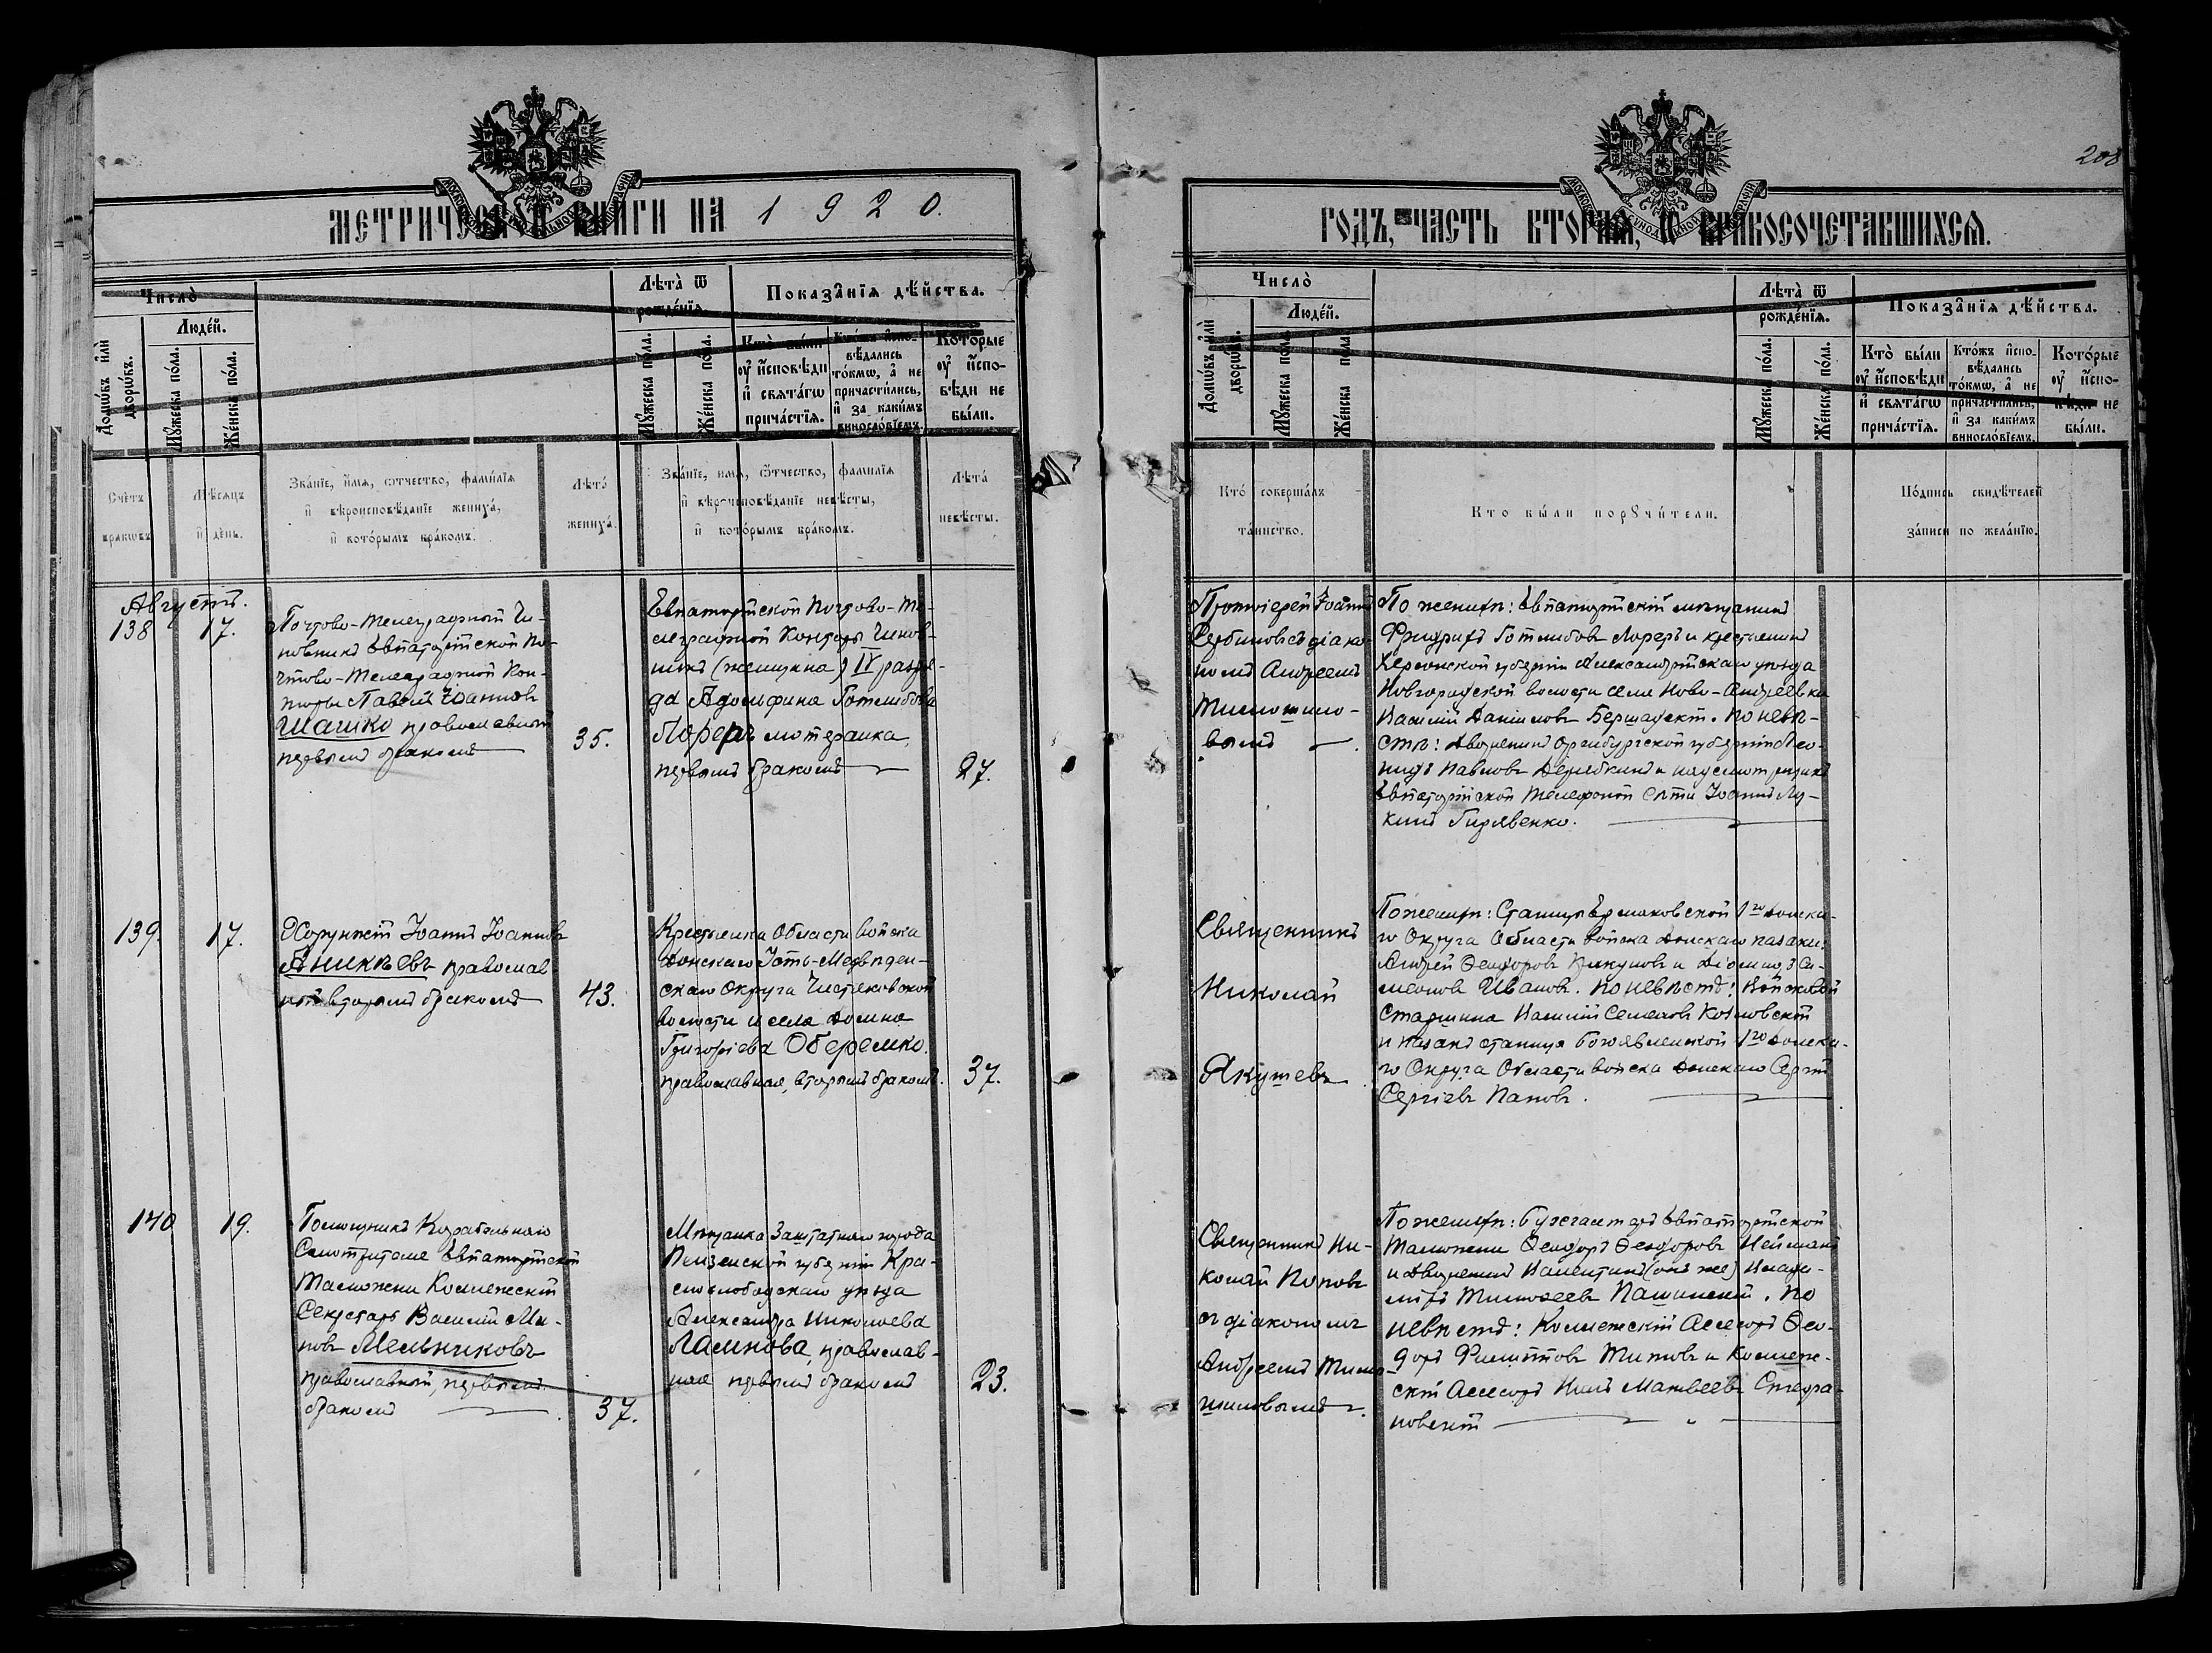 208
МЕТРИЧЕСКОЙ КНИГИ НА 1920.
ГОДЪ, ЧАСТЬ ВТОРАЯ, О БРАКОСОЧЕТАВШИХСЯ.
Число̀
Людéй.
Домѡ́въ и҆лѝ дворѡ́въ.
Мꙋ́жеска по́ла.
Же́нска по́ла.
Лѣта̀ ѿ рожде́нїѧ.
Мꙋ́жеска по́ла.
Же́нска по́ла.
Показа̑нїѧ дѣ́йства.
Кто̀ бы́ли ᲂу҆ и҆́сповѣди и҆ свѧта́гѡ прича́стїѧ.
Кто́жъ и҆спо-
вѣ́дались
то́кмѡ, а҆ не
причасти́лись,
и҆ за каки́мъ
винosло́вїемъ.
Кото́рые
ᲂу҆ и҆́спо-
вѣди не
бы́ли.
Счетъ браковъ
Мѣсяцъ и день.
Званіе, имя, отчество, фамилія
и вѣроисповѣданіе жениха,
и которымъ бракомъ.
Лѣта жениха.
Званіе, имя, отчество, фамилія
и вѣроисповѣданіе невѣсты,
и которымъ бракомъ.
Лѣта невѣсты.
Кто совершалъ таинство.
Кто были поручители.
Подпись свидѣтелей
записи по желанію.
Августъ.
138 17.
Почтово-Телеграфный Чи-
новникъ Евпаторійской По-
чтово-Телеграфной Кон-
торы Павелъ Іоанновъ
Шашко православный
первымъ бракомъ
35.
Евпаторійской Почтово-Те-
леграфной Конторы Чинов-
никъ (женщина) IV разря-
да Адольфина Готлибова
Лореръ лютеранка,
первымъ бракомъ
27.
Протоіерей Іоаннъ
Сербиновъ съ діако-
номъ Андреемъ
Тимошино-
вымъ
По женихѣ: Евпаторійскій мѣщанинъ
Фридрихъ Готлибовъ Лореръ и крестьянинъ
Херсонской губерніи Александрійскаго уѣзда
Новгородской волости села Ново-Андреевки
Василій Даніиловъ Бершадскій. По невѣ-
стѣ: Дворянинъ Оренбургской губерніи Лео-
нидъ Павловъ Дерябкинъ и надсмотрщикъ
Евпаторійской телефонной сѣти Іоаннъ Лу-
кинъ Гирявенко.
139. 17.
Хорунжій Іоаннъ Іоанновъ
Аникѣевъ православ
ный вторымъ бракомъ
43.
Крестьянка Области войска
Донскаго Усть-Медвѣдиц-
скаго Округа Чистяковской
волости и села Домна
Григоріева Оберемко.
православная, вторымъ бракомъ.
37.
Священникъ
Николай
Якушевъ
По женихѣ: Станицы Ермаковской 1го Донска-
го Округа Области войска Донскаго казаки:
Андрей Ѳеодоровъ Кикуновъ и Діомидъ Си-
меоновъ Ивановъ. По невѣстѣ: Войсковой
Старшина Василій Семеновъ Козловскій
и казакъ станицы Богоявленской 1го Донска-
го Округа Области войска Донскаго Сергій
Сергіевъ Поповъ.
140 19.
Помощникъ Корабельнаго
Смотрителя Евпаторійской
Таможни Коллежскій
Секретарь Василій Ми-
новъ Мельниковъ
православный, первымъ
бракомъ
37.
Мѣщанка Заштатнаго города
Пензенской губерніи Кра-
снослободскаго уѣзда
Александра Николаева
Ламнова, православ-
ная первымъ бракомъ
23.
Священникъ Ни-
колай Поповъ
съ діакономъ
Андреемъ Тимо-
шиновымъ.
По женихѣ: Бухгалтеръ Евпаторійской
Таможни Ѳеодоръ Ѳеодоровъ Нейманъ
и Дворянинъ Валентинъ (онъ же) Влади-
міръ Тимоѳеевъ Пашинскій. По
невѣстѣ: Коллежскій Ассесоръ Ѳео-
доръ Филипповъ Титовъ и Коллеж-
скій Ассесоръ Нилъ Матвеевъ Стефа-
новскій